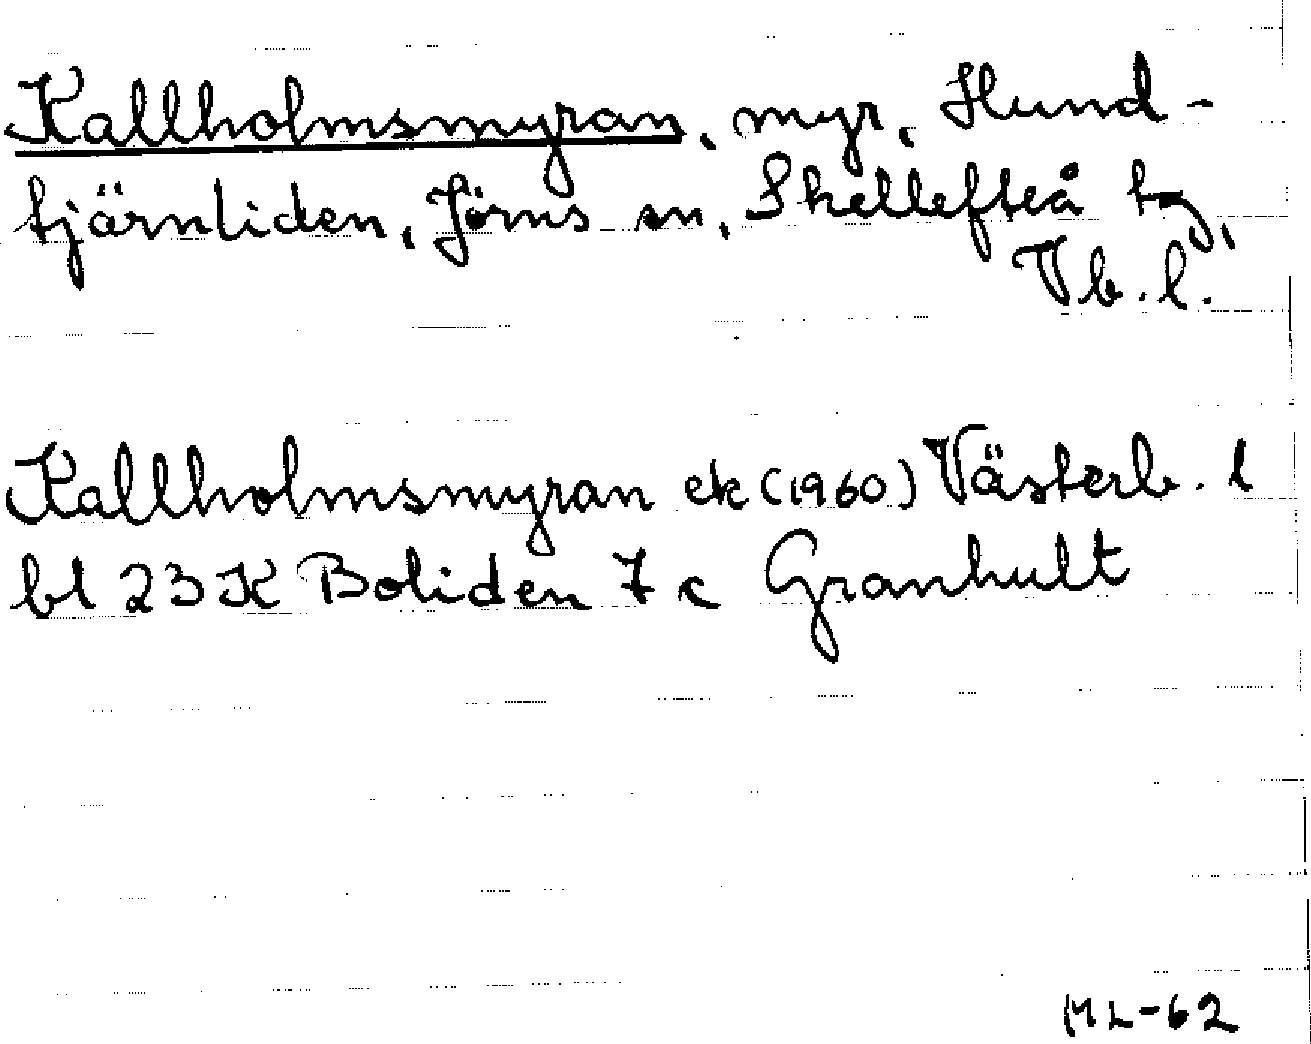 Kallholmsmyran, myr, Hund-
tjärnliden, Jörns sn, Skellefteå tg,
Vb.l.
Kallholmsmyran ek (1960) Västerb. l
bl 23 K Boliden 7 c Granhult
ML-62